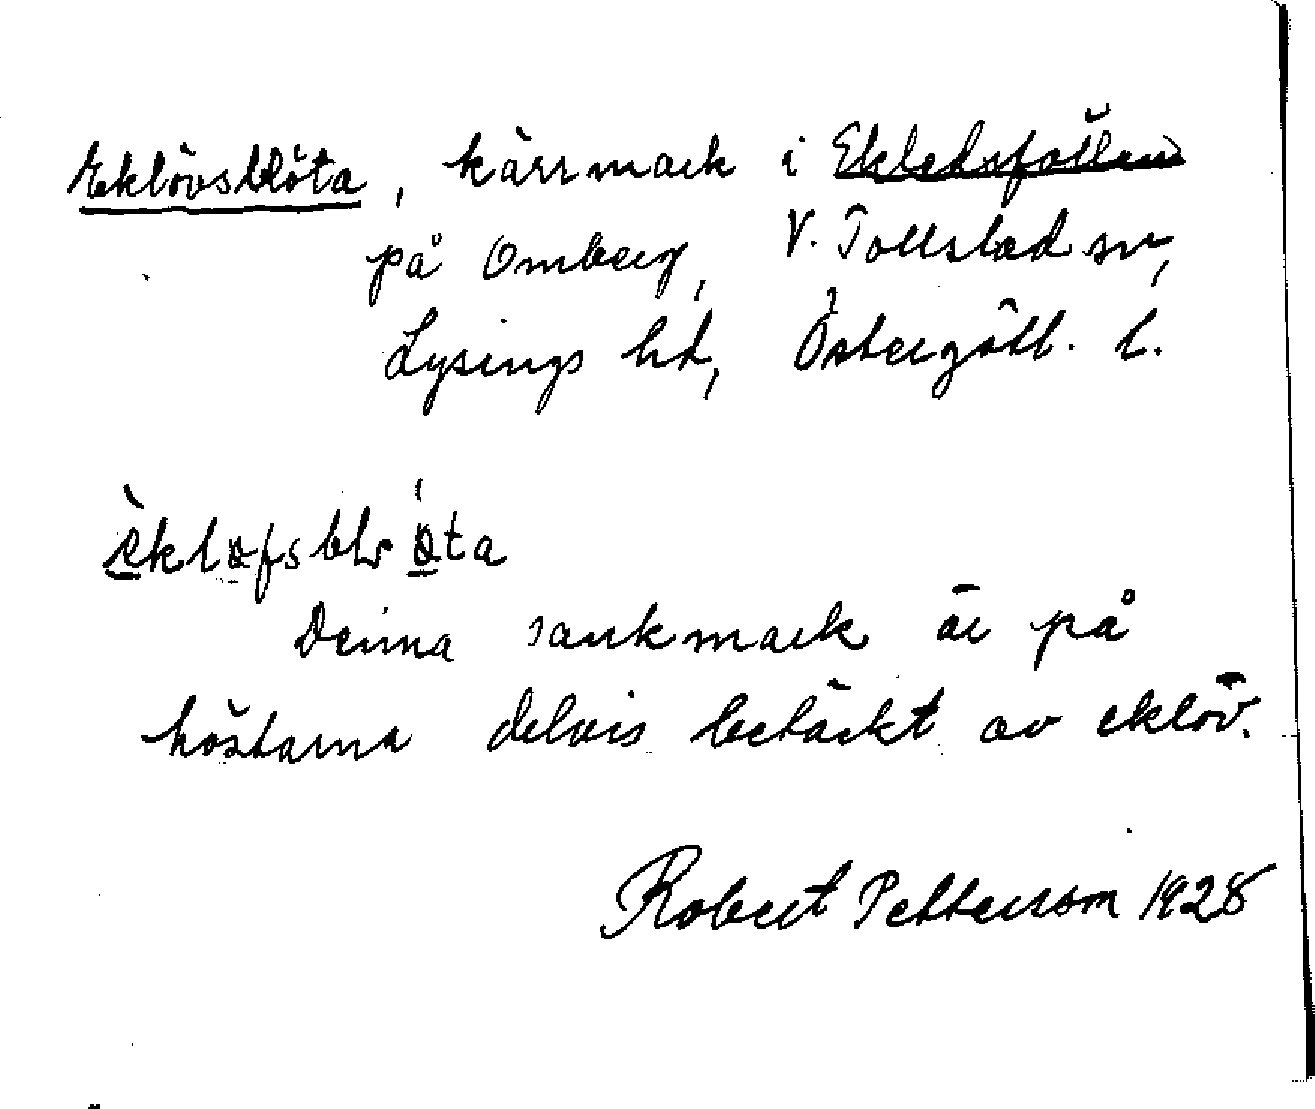 Eklövsblöta, kärrmark i Ekledsfållen
på Omberg, V. Tollstad sn,
Lysings hd, Östergötl. l.
èkløfsbløta
Denna sankmark är på
höstarna delvis betäckt av eklöv.
Robert Petterson 1928